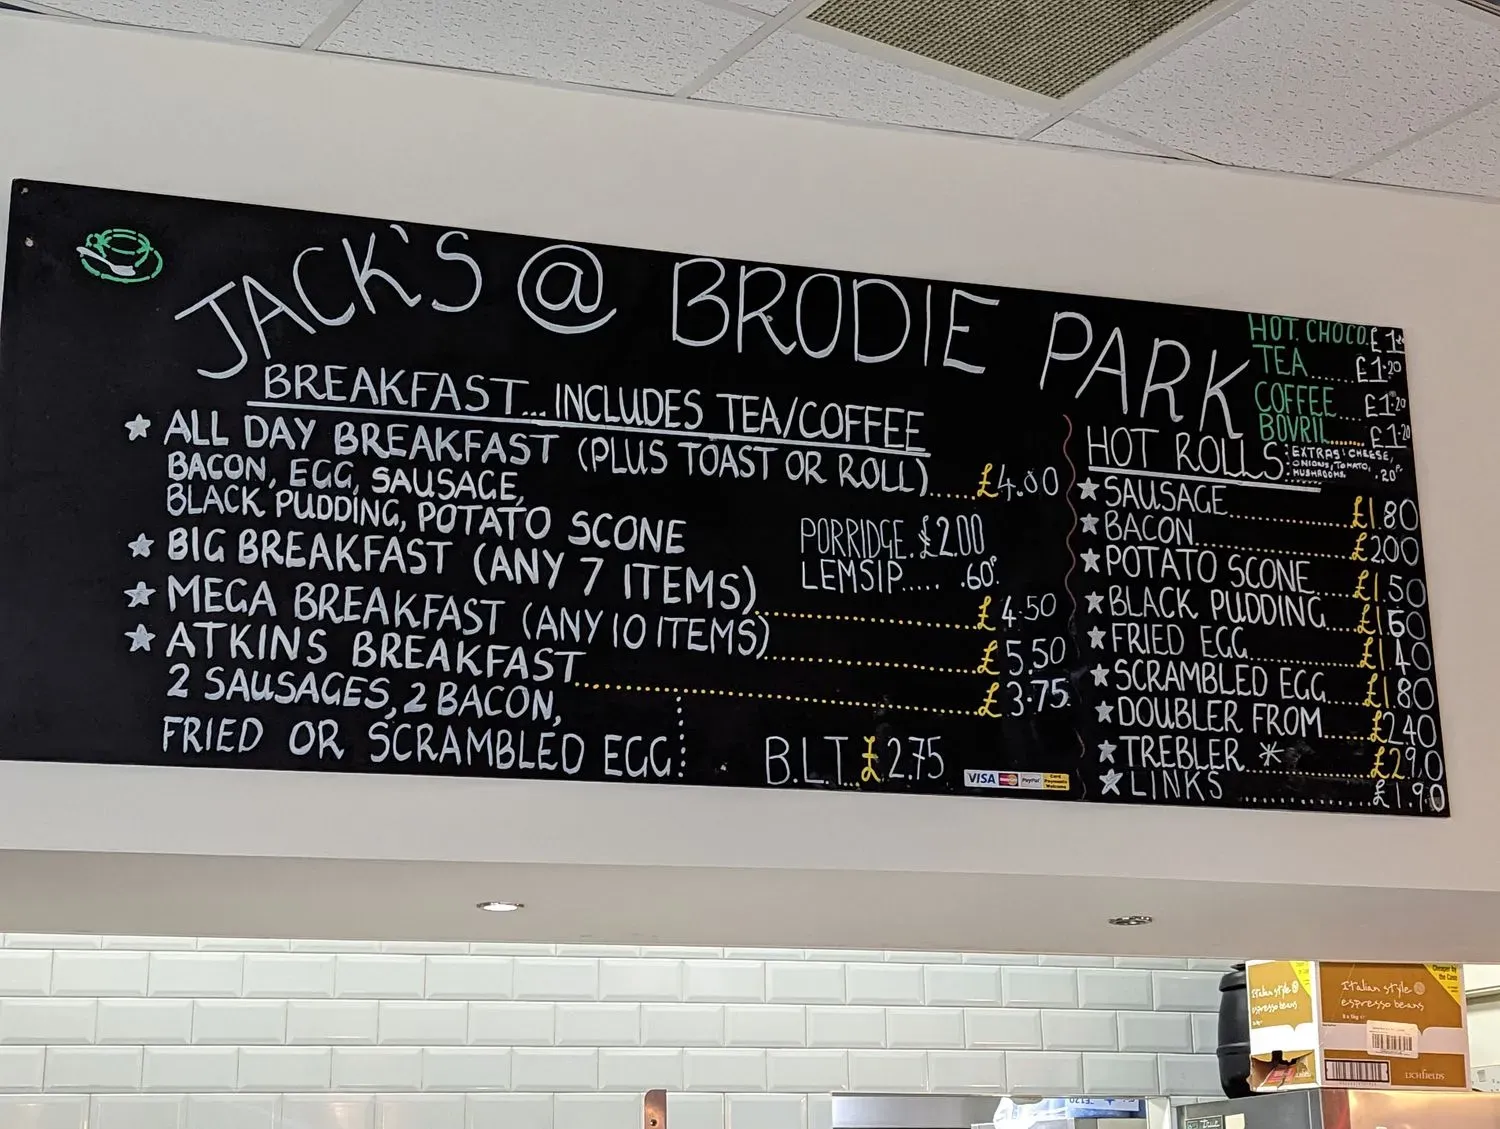 JACK'S @ BRODIE PARK
HOT. CHOCO.
TEA......£1.20
COFFEE....£1.20
BOVRIL.......£1.20
BREAKFAST... INCLUDES TEA/COFFEE
★ ALL DAY BREAKFAST (PLUS TOAST OR ROLL)......£4.00
BACON, EGG, SAUSAGE,
BLACK PUDDING, POTATO SCONE
★ BIG BREAKFAST (ANY 7 ITEMS)......£4.50
★ MEGA BREAKFAST (ANY 10 ITEMS)......£5.50
★ ATKINS BREAKFAST......£3.75
2 SAUSAGES, 2 BACON,
FRIED OR SCRAMBLED EGG
PORRIDGE. £2.00
LEMSIP..... .60P.
B.L.T. £2.75
VISA PayPal
HOT ROLLS
EXTRAS: CHEESE,
ONIONS, TOMATO,
MUSHROOMS .20P
★ SAUSAGE......£1.80
★ BACON......£2.00
★ POTATO SCONE......£1.50
★ BLACK PUDDING......
★ FRIED EGG......£1.40
★ SCRAMBLED EGG......£1.80
★ DOUBLER FROM......£2.40
★ TREBLER *......£2.90
★ LINKS......£1.90
Italian style
espresso beans
Cheaper by
the Case
Italian style
espresso beans
LICHFIELDS